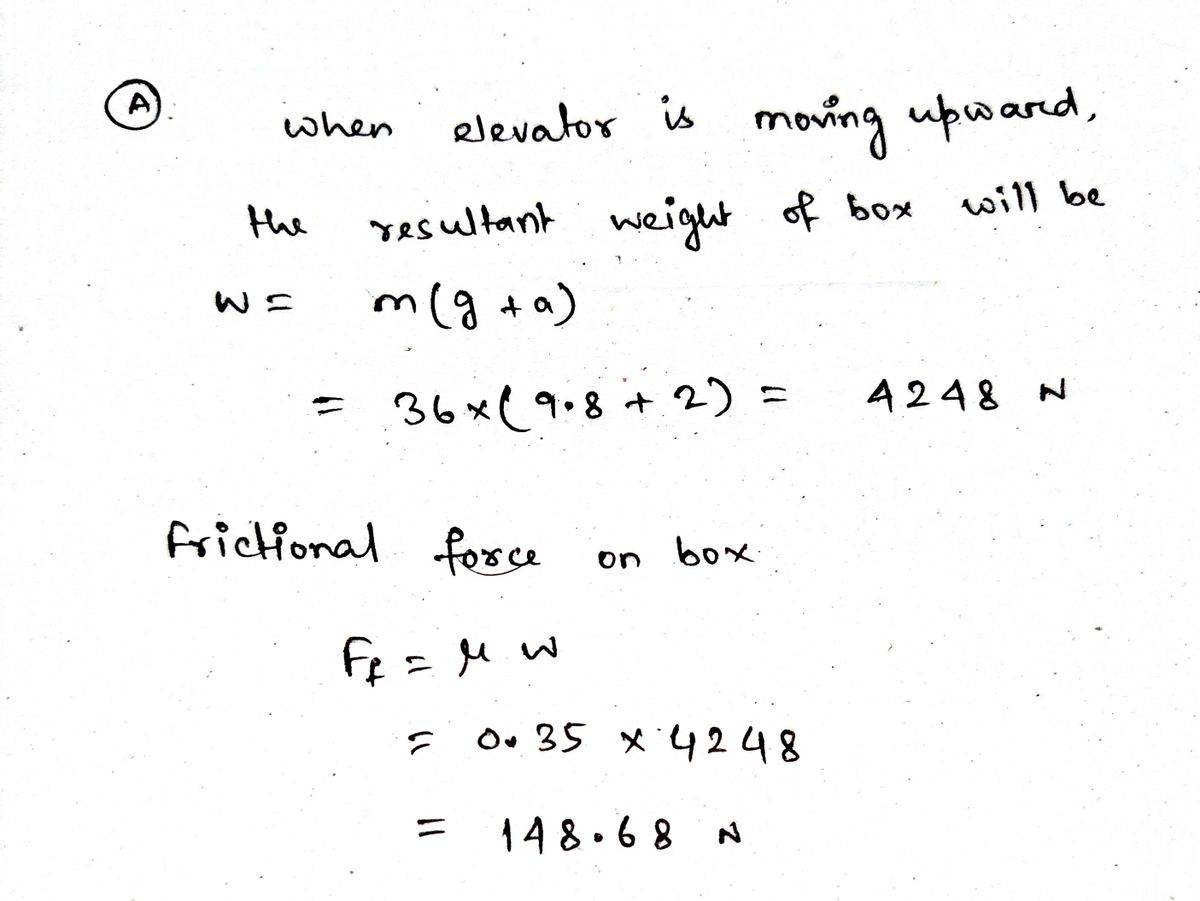 A.
when elevator is moving upward,
the resultant weight of box will be
W = m(g + a)
= 36×(9.8 + 2) = 4248 N
Frictional force on box
Ff = μ W
= 0.35 × 4248
= 148.68 N